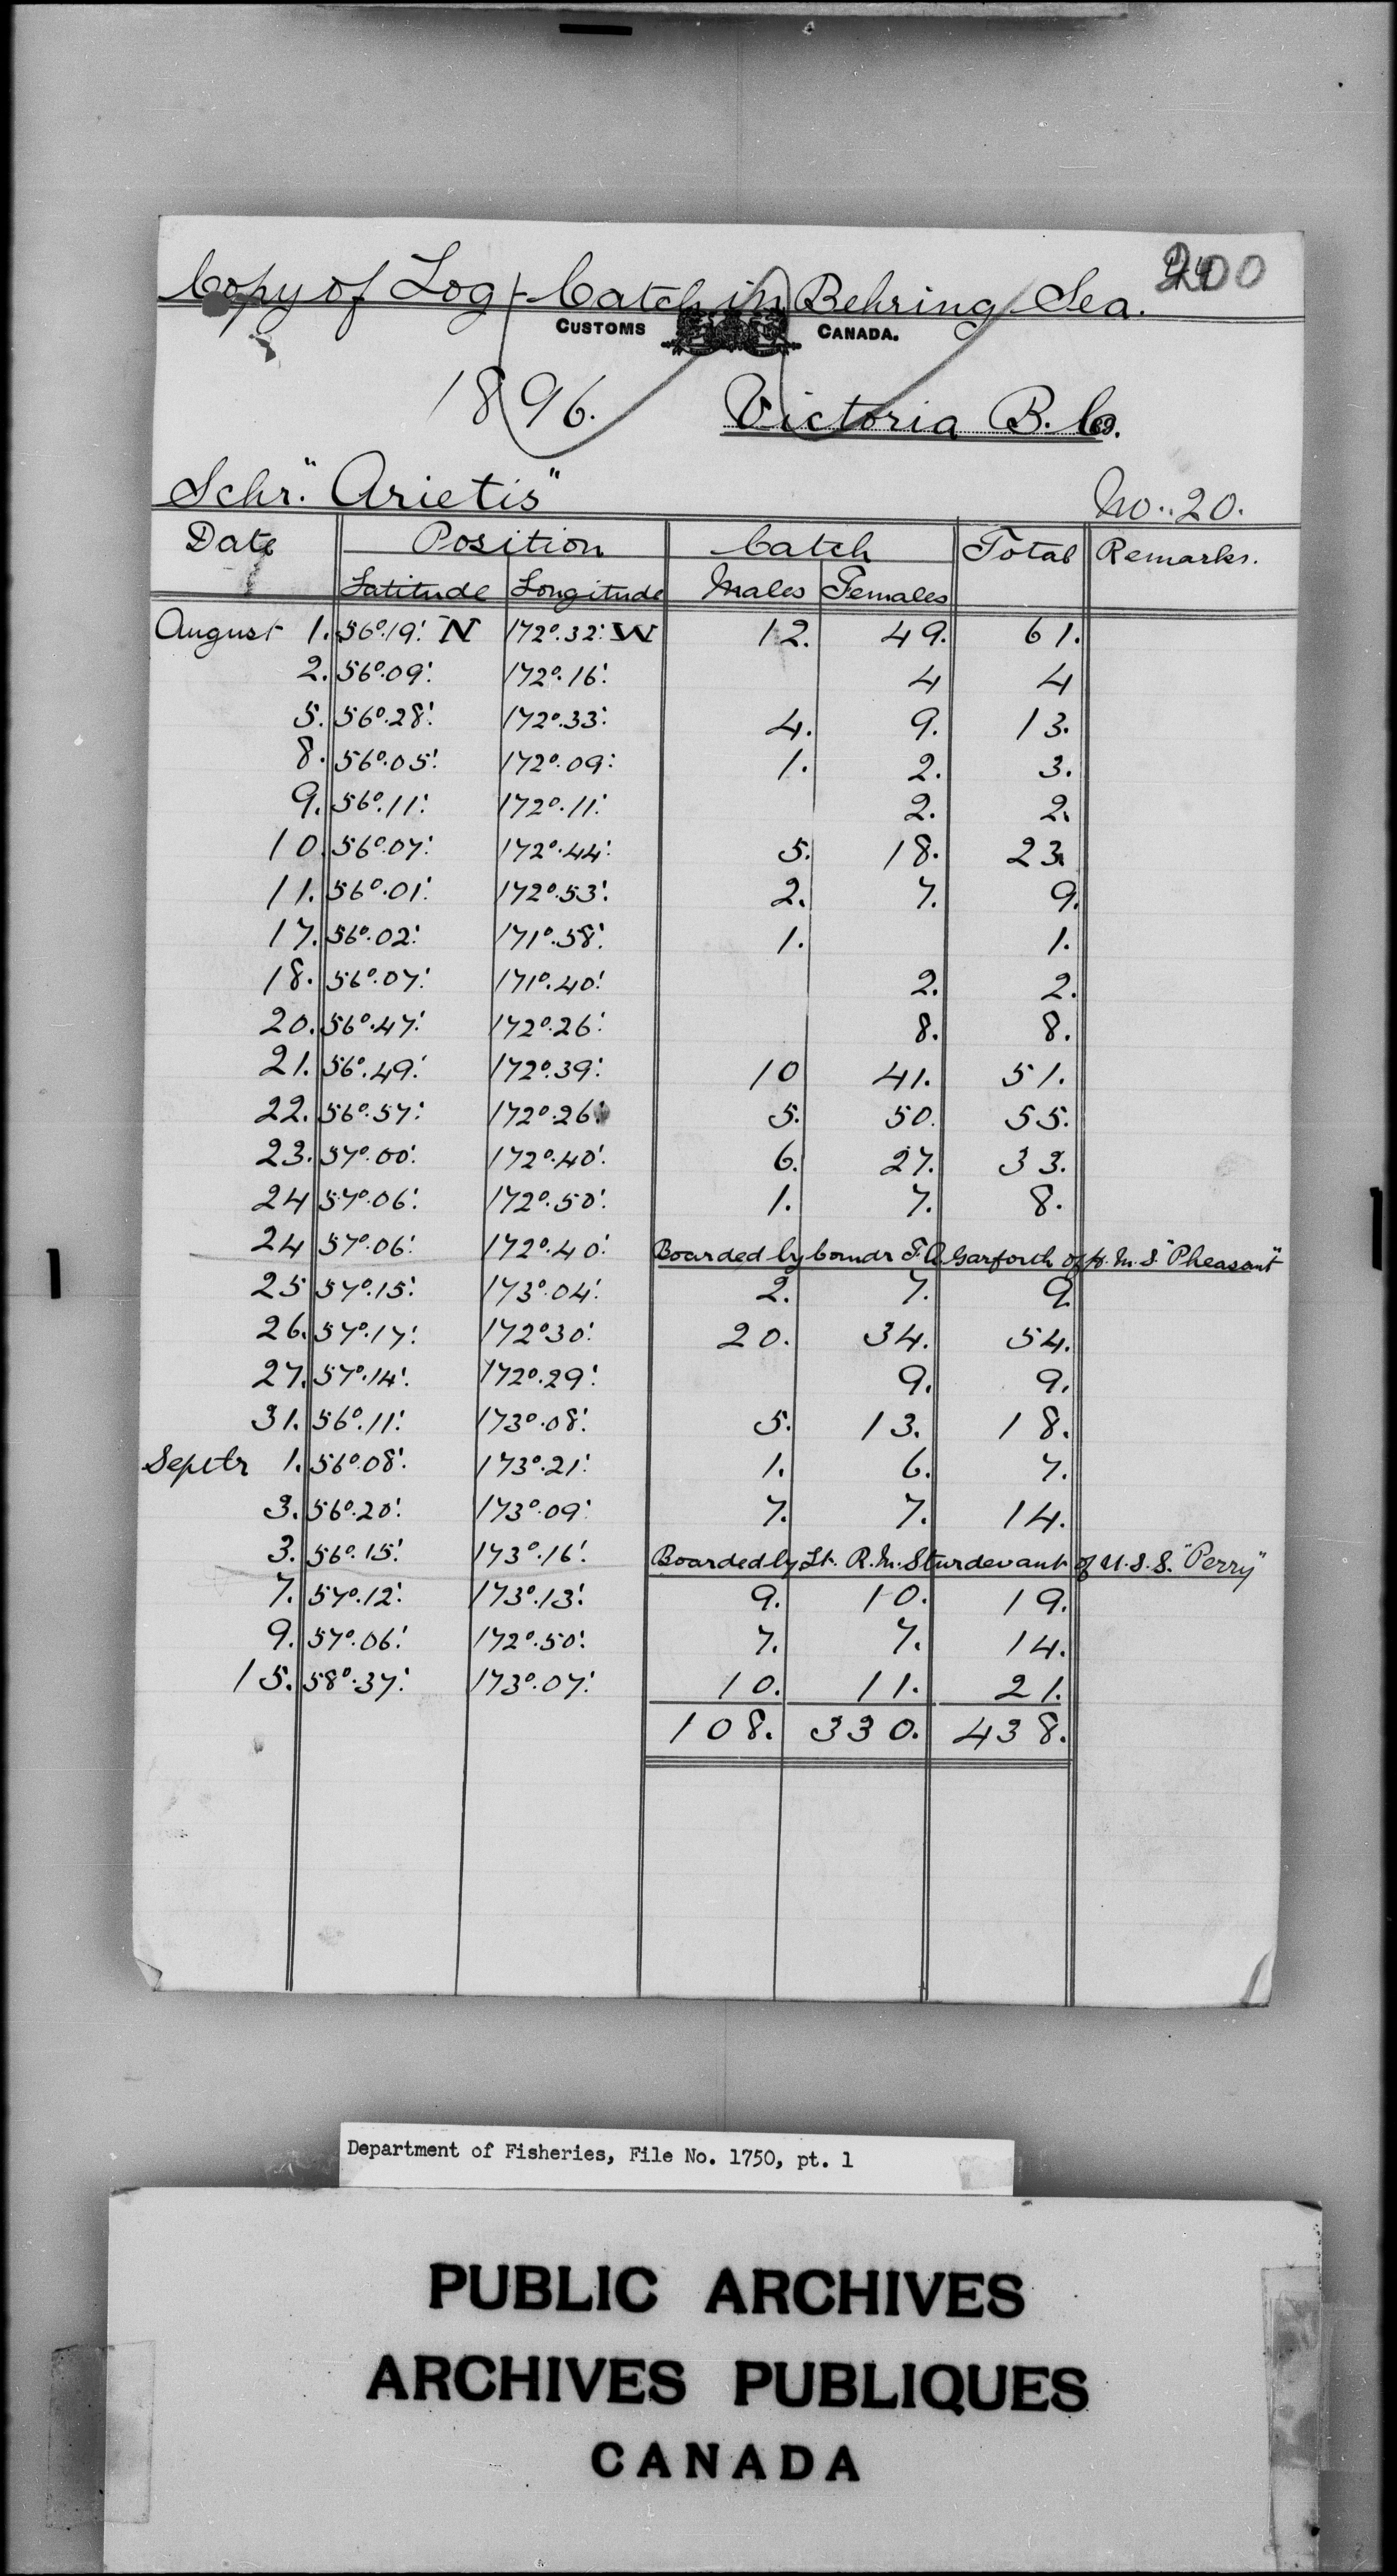 200
Copy of Log - Catch in Behring Sea.
CUSTOMS CANADA.
1896. Victoria B. C.
Schr. "Arietis" No. 20.
Date Position Catch Total Remarks.
Latitude Longitude Males Females
August 1. 56°.19'. N 172°.32'. W 12. 49. 61.
2. 56°.09'. 172°.16'. 4 4
5. 56°.28'. 172°.33'. 4. 9. 13.
8. 56°.05'. 172°.09'. 1. 2. 3.
9. 56°.11'. 172°.11'. 2. 2.
10. 56°.07'. 172°.44'. 5. 18. 23.
11. 56°.01'. 172°.53'. 2. 7. 9.
17. 56°.02'. 171°.58'. 1. 1.
18. 56°.07'. 171°.40'. 2. 2.
20. 56°.47'. 172°.26'. 8. 8.
21. 56°.49'. 172°.39'. 10 41. 51.
22. 56°.57'. 172°.26'. 5. 50. 55.
23. 57°.00'. 172°.40'. 6. 27. 33.
24 57°.06'. 172°.50'. 1. 7. 8.
24 57°.06'. 172°.40'. Boarded by Comdr F. A. Garforth of H. M. S. "Pheasant"
25 57°.15'. 173°.04'. 2. 7. 9.
26. 57°.17'. 172°30'. 20. 34. 54.
27. 57°.14'. 172°.29'. 9. 9.
31. 56°.11'. 173°.08'. 5. 13. 18.
Septbr 1. 56°.08'. 173°.21'. 1. 6. 7.
3. 56°.20'. 173°.09'. 7. 7. 14.
3. 56°.15'. 173°.16'. Boarded by Lt. R. M. Sturdevant of U. S. S. "Perry"
7. 57°.12'. 173°.13'. 9. 10. 19.
9. 57°.06'. 172°.50'. 7. 7. 14.
15. 58°.37'. 173°.07'. 10. 11. 21.
108. 330. 438.
Department of Fisheries, File No. 1750, pt. 1
PUBLIC ARCHIVES
ARCHIVES PUBLIQUES
CANADA